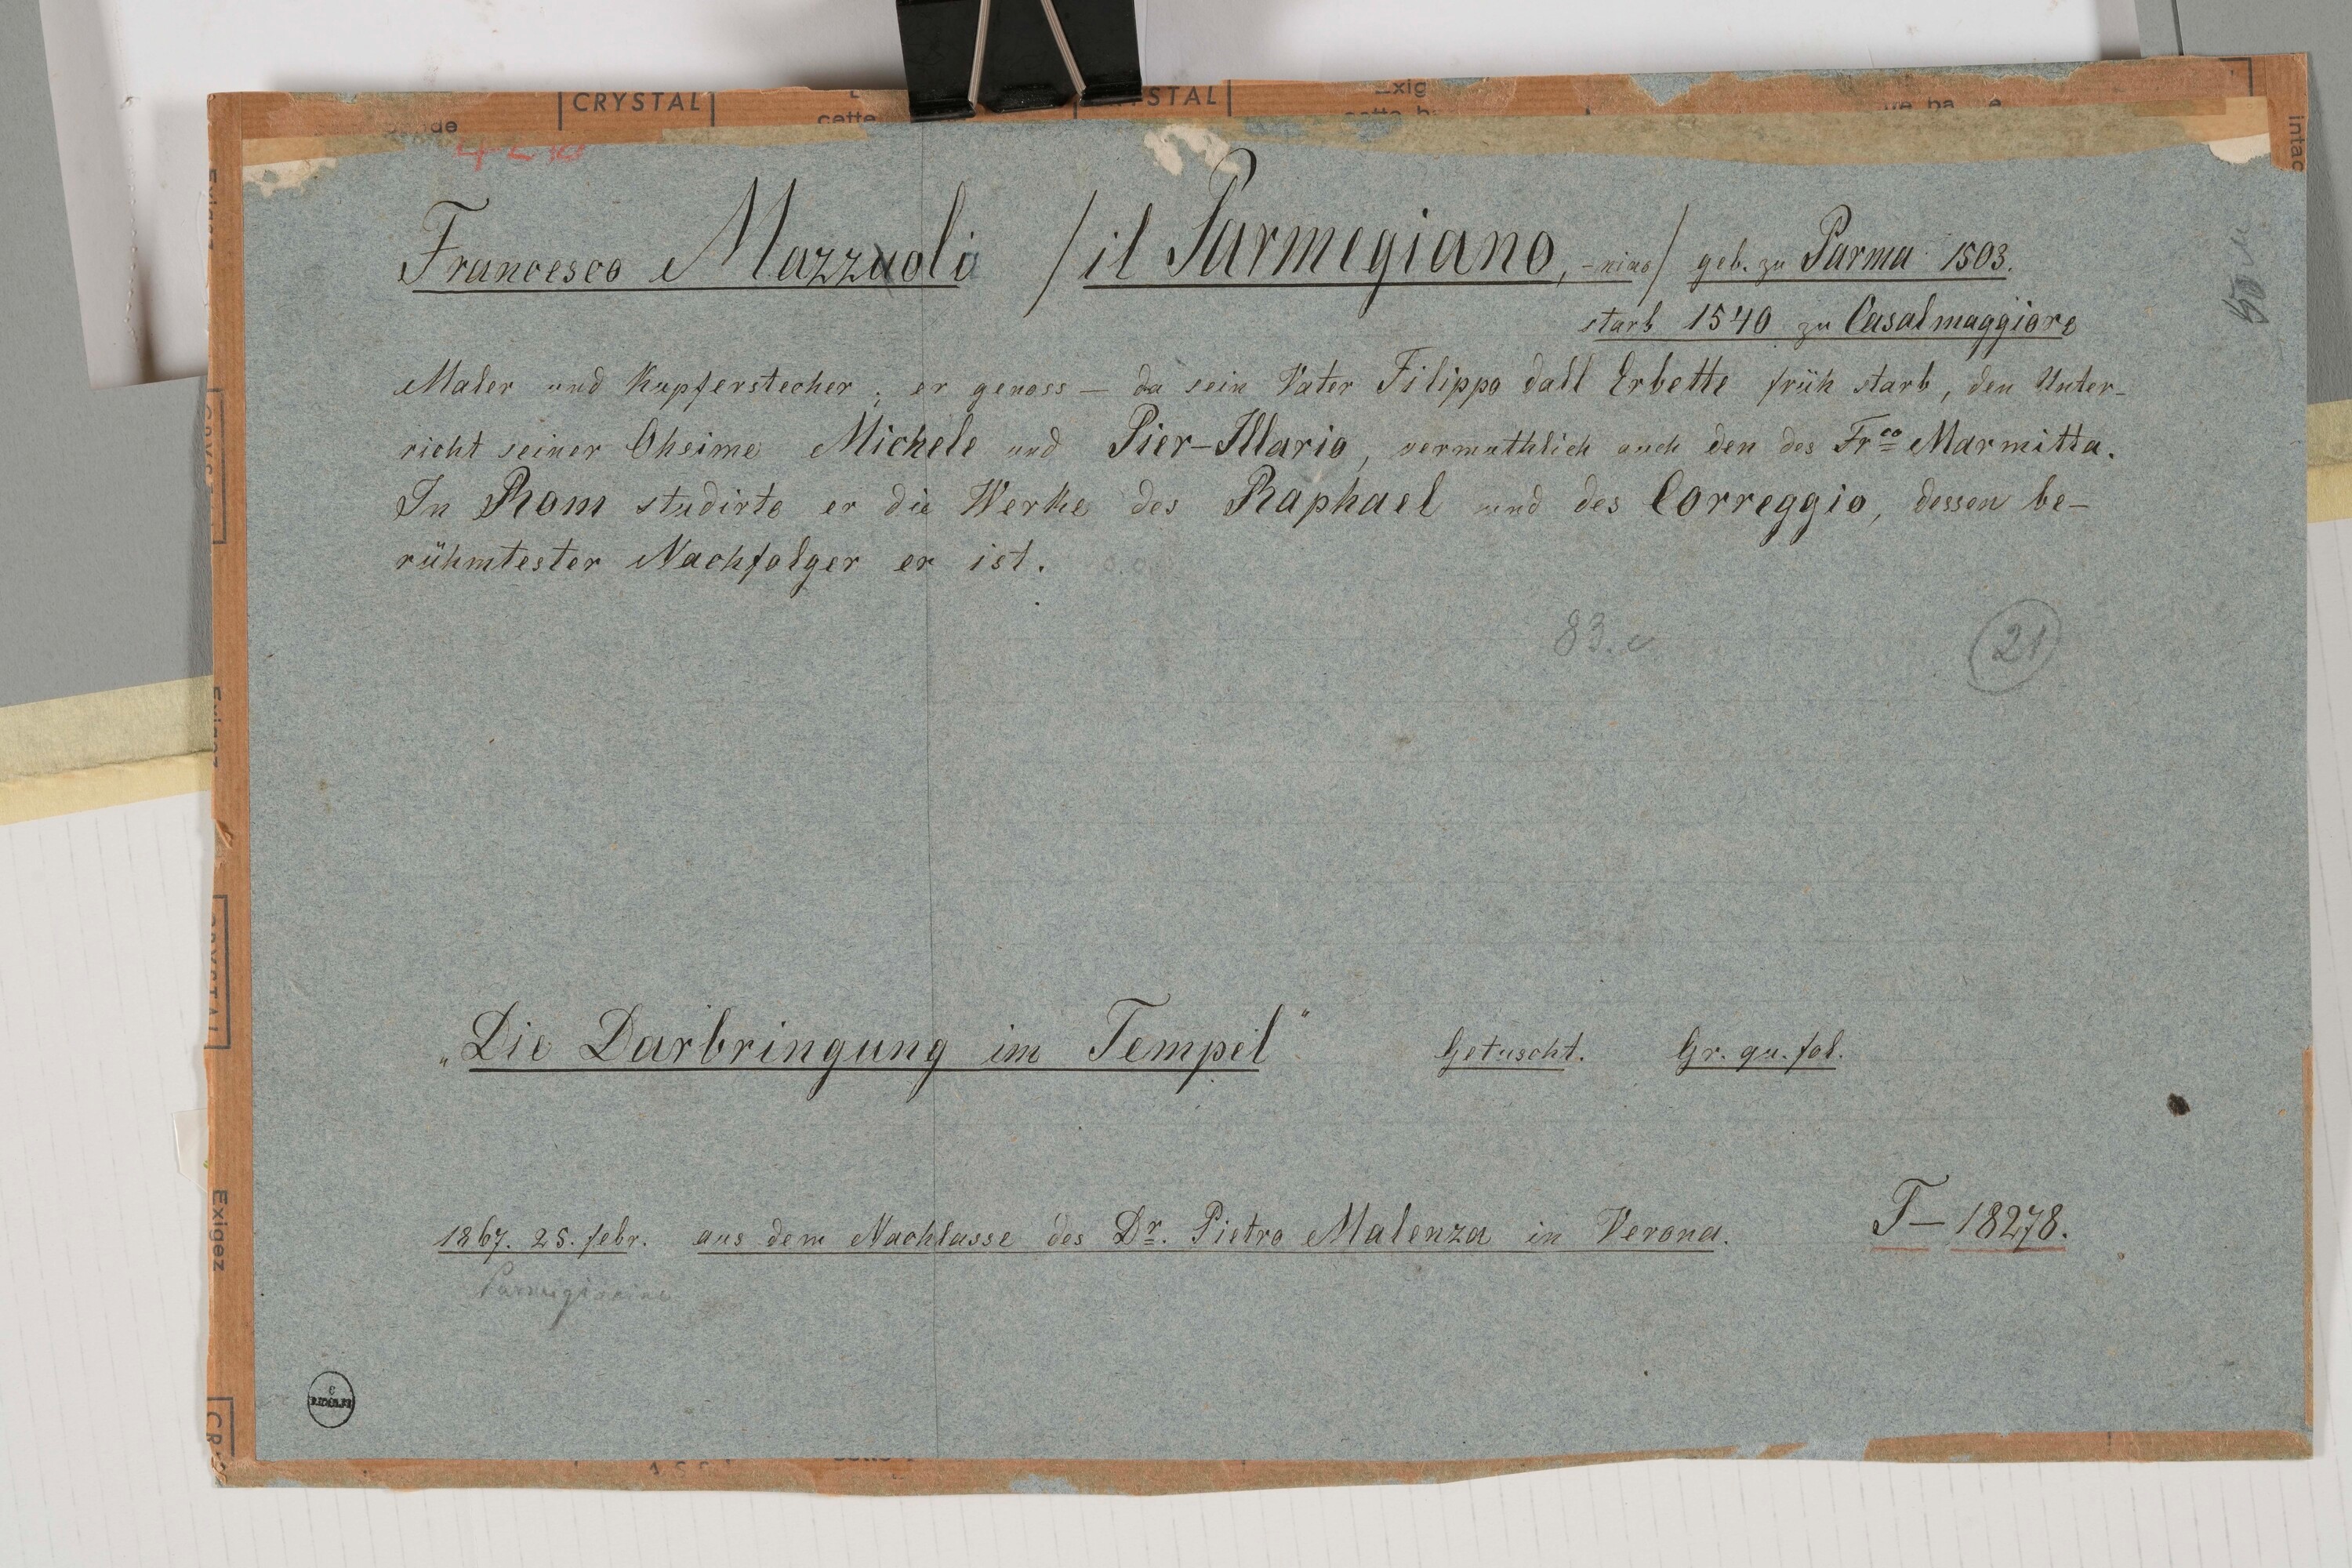 CRYSTAL
STAL
cette
intac
Francesco Mazzuoli /il Parmegiano, -nino/ geb. zu Parma 1503.
starb 1540 zu Casalmaggiore
Maler und Kupferstecher; er genoss — da sein Vater Filippo dall Erbette früh starb, den Unter-
richt seiner Oheime Michele und Pier-Illario, vermuthlich auch den des Frco Marmitta.
In Rom studirte er die Werke des Raphael und des Correggio, dessen be-
rühmtester Nachfolger er ist.
83.
21
„Die Darbringung im Tempel" Getuscht. Gr. qu. fol.
1867. 25. febr. aus dem Nachlasse des Dr. Pietro Malenza in Verona. T—18278.
Parmigianino
Exigez